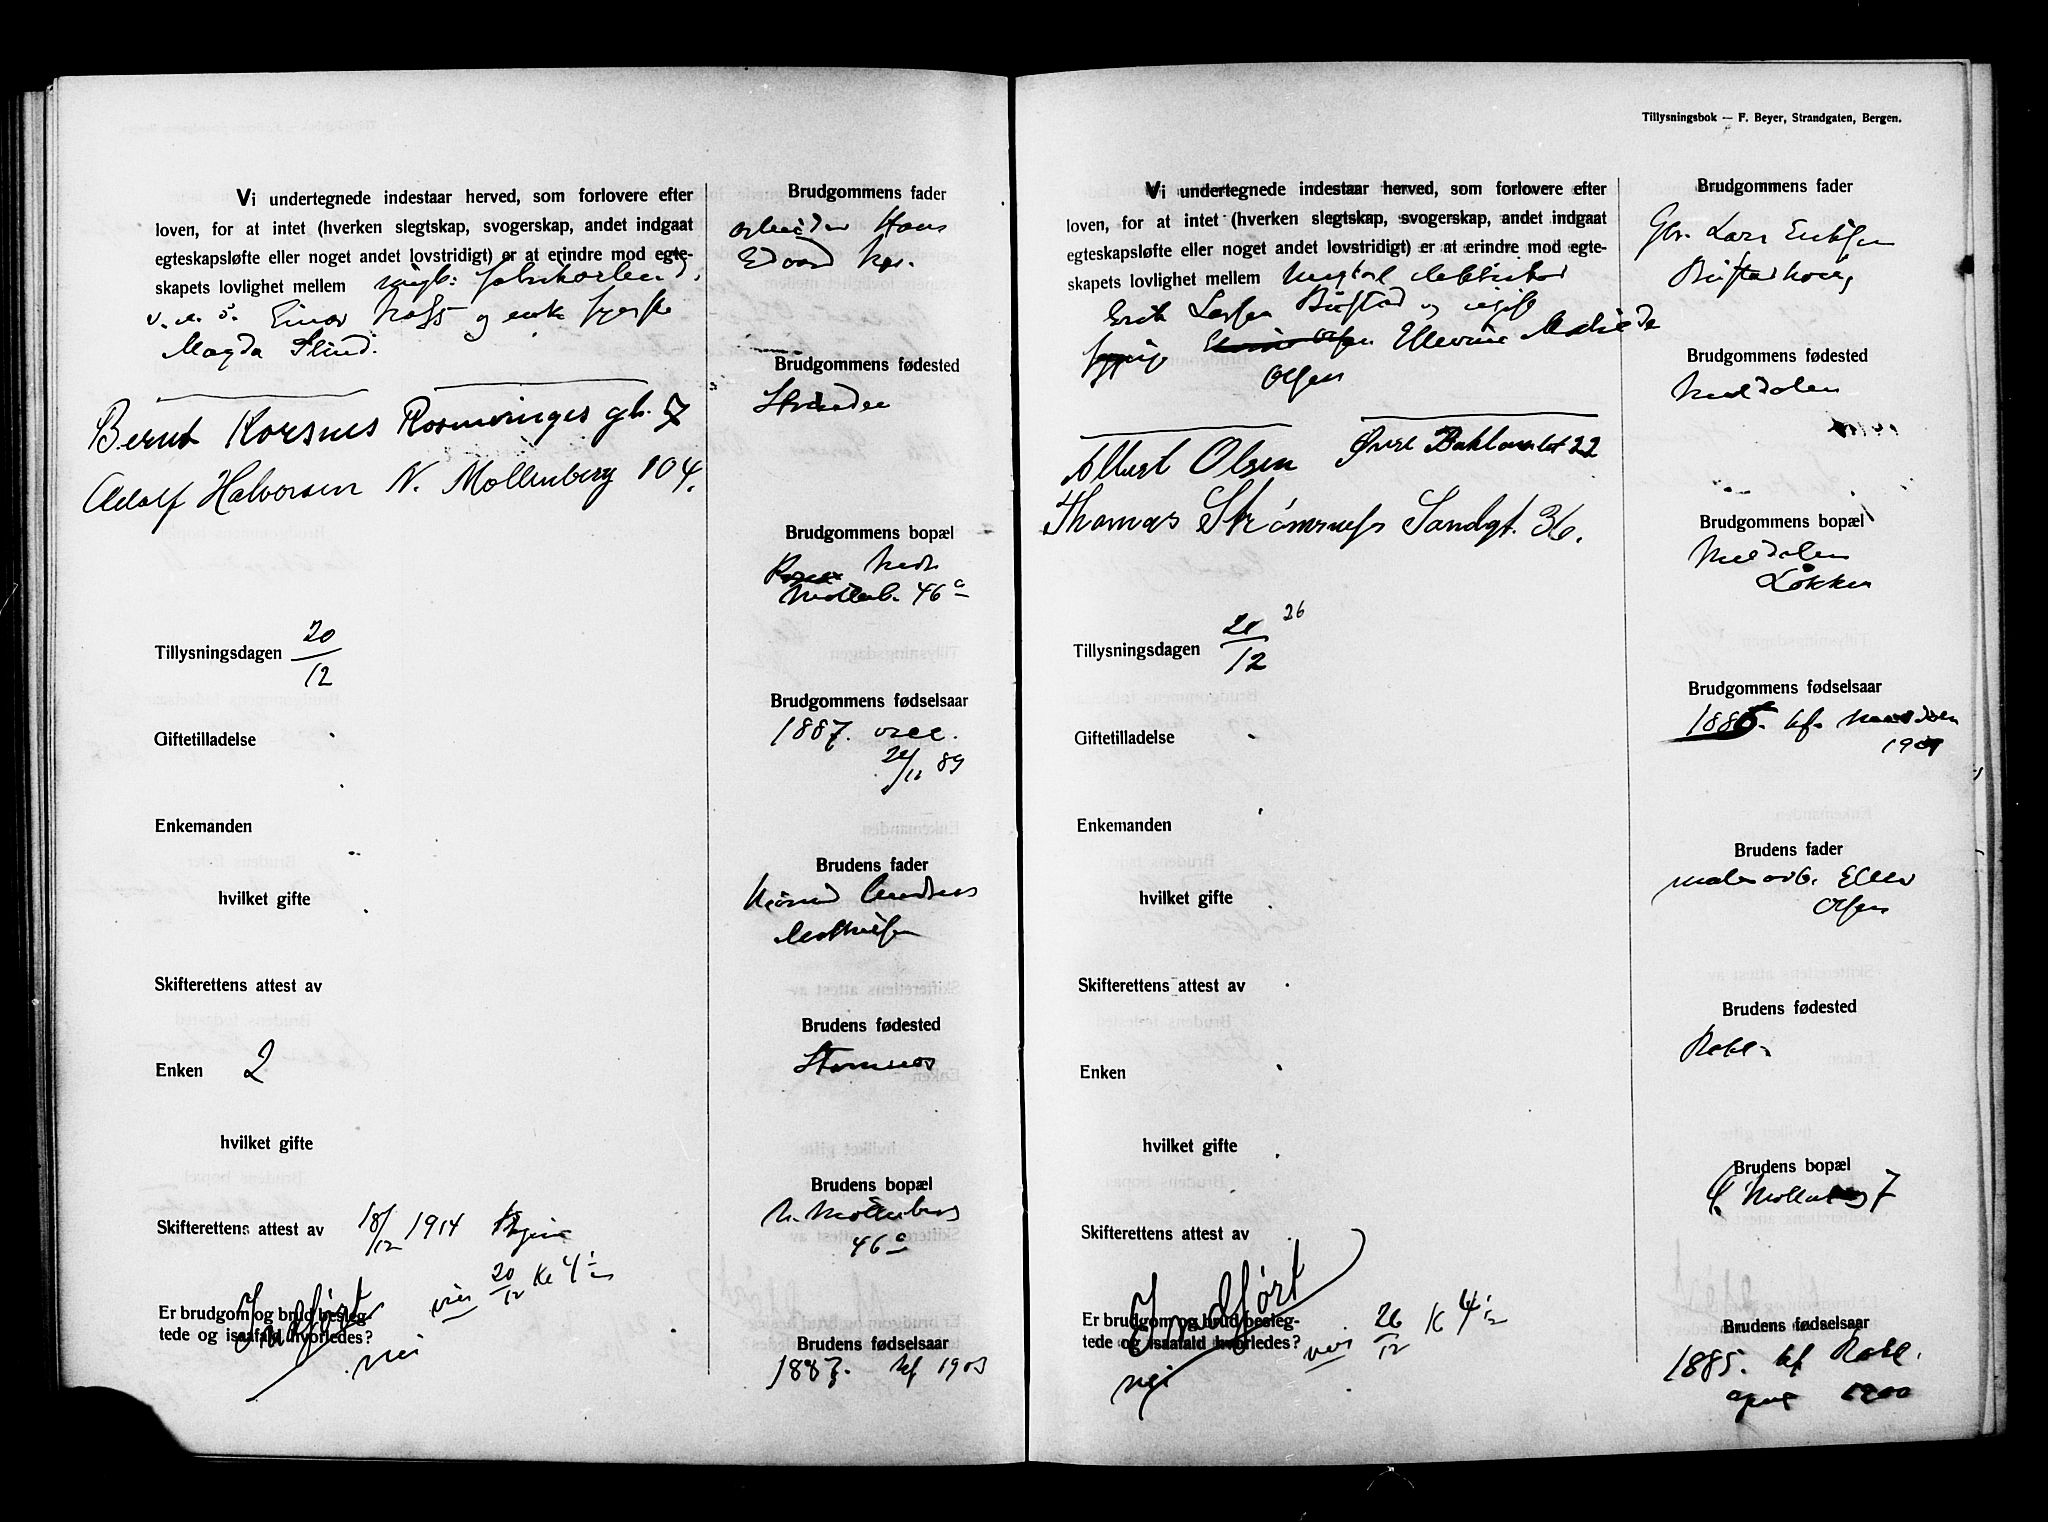 Vi undertegnede indestaar herved, som forlovere efter
loven, for at intet (hverken slegtskap, svogerskap, andet indgaat
egteskapsløfte eller noget andet lovstridigt) er at erindre mod egte-
skapets lovlighet mellem ungk. fabrikarbeid.
Einar og enke
Magda
Bernt Korsnes Rosenvinges gt. 7
Adolf Halvorsen N. Møllenberg 104.
Tillysningsdagen 20/12
Giftetilladelse
Enkemanden
hvilket gifte
Skifterettens attest av
Enken 2
hvilket gifte
Skifterettens attest av 18/12 1914
viet 20/12 Kl 4½
Er brudgom og brud beslег-
tede og isaafald hvorledes?
Indført
nei
Brudgommens fader
arbeider Hans
Edvard
Brudgommens fødested
Strinden
Brudgommens bopæl
Nedr
Møllenb. 46a
Brudgommens fødselsaar
1887. vacc.
89
Brudens fader
Anders
Mathisen
Brudens fødested
Stamnes
Brudens bopæl
N. Møllenberg
46a
Brudens fødselsaar
1887. kf 1903
Tillysningsbok — F. Beyer, Strandgaten, Bergen.
Vi undertegnede indestaar herved, som forlovere efter
loven, for at intet (hverken slegtskap, svogerskap, andet indgaat
egteskapsløfte eller noget andet lovstridigt) er at erindre mod egte-
skapets lovlighet mellem ungkarl
Erik Larsen Bustad og ugift
Ellevine Mathilde
Olsen
Albert Olsen Øvre Baklandet 22
Thomas Strømsnes Sandgt. 36.
Tillysningsdagen 20/12 26
Giftetilladelse
Enkemanden
hvilket gifte
Skifterettens attest av
Enken
hvilket gifte
Skifterettens attest av
Er brudgom og brud besleg-
tede og isaafald hvorledes?
Indført
viet 26/12 K 4½
nei
Brudgommens fader
Gbr. Lars Eriksen
Brudgommens fødested
Meldalen
Brudgommens bopæl
Meldalen
Løkken
Brudgommens fødselsaar
1885. kf. Meldalen
Brudens fader
malerarb. Eller
Olsen
Brudens fødested
Brudens bopæl
Ø. Møllenberg 7
Brudens fødselsaar
1885. kf
april 1900